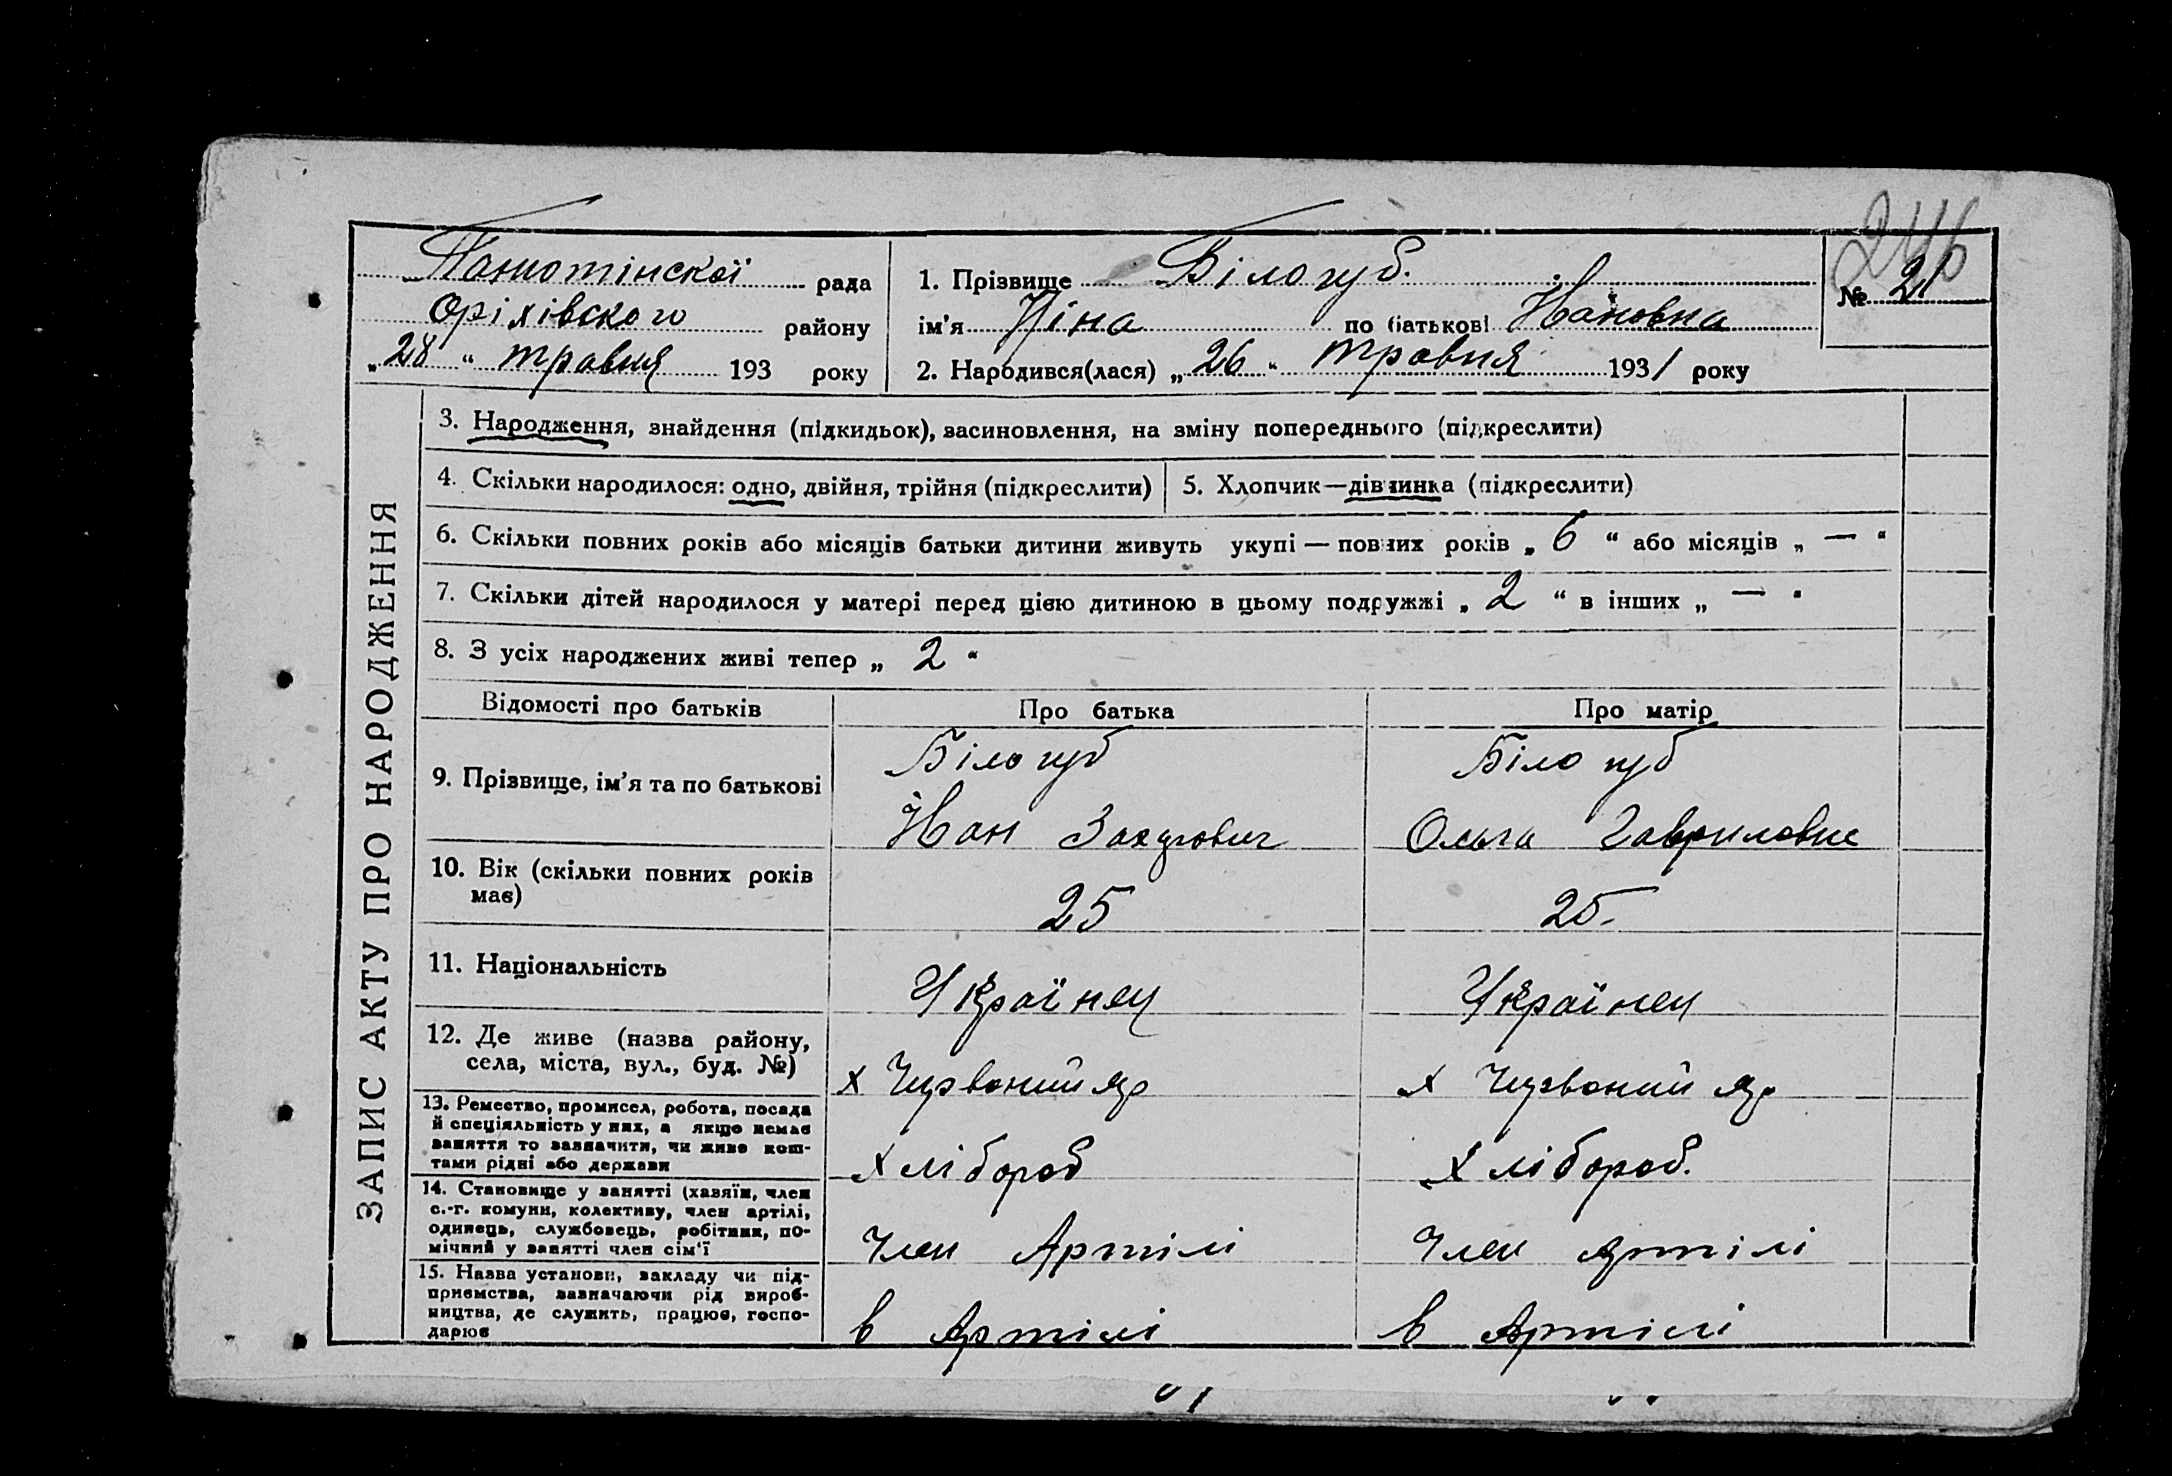 246
Панютінскої рада
Оріхівского району
„28“ травня 193 року
1. Прізвище Білогуб.
ім'я Ніна по батькові Йановна
2. Народився(лася) „26“ травня 1931 року
№ 21
ЗАПИС АКТУ ПРО НАРОДЖЕННЯ
3. Народження, знайдення (підкидьок), васиновлення, на зміну попереднього (підкреслити)
4. Скільки народилося: одно, двійня, трійня (підкреслити)
5. Хлопчик—дівчинка (підкреслити)
6. Скільки повних років або місяців батьки дитини живуть укупі — повних років „6“ або місяців „—“
7. Скільки дітей народилося у матері перед цією дитиною в цьому подружжі „2“ в інших „—“
8. З усіх народжених живі тепер „2“
Відомості про батьків Про батька Про матір
9. Прізвище, ім'я та по батькові
Білогуб
Йан Захарович
Білогуб
Ольга Гавриловна
10. Вік (скільки повних років
має)
25
25.
11. Національність
Українец
Українец
12. Де живе (назва району,
села, міста, вул., буд. №)
х Червоний яр
х Червоний яр
13. Ремество, промисел, робота, посада
й спеціяльність у них, а якщо немає
заняття то зазначити, чи живе кош-
тами рідні або держави
Хлібороб
Хлібороб.
14. Становище у занятті (хазяїн, член
с.-г. комуни, колективу, член артілі,
одинець, службовець, робітник, по-
мічний у занятті член сім'ї
Член Артілі
Член Артілі
15. Назва установи, закладу чи під-
приємства, зазначаючи рід вироб-
ництва, де служить, працює, госпо-
дарює
в Артілі
в Артілі